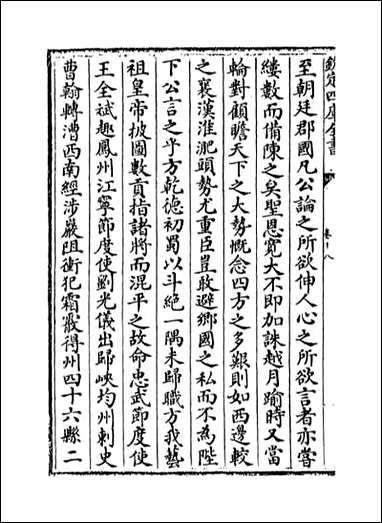 欽定四庫全書
卷十八
至朝廷郡國凡公論之所欲伸人心之所欲言者亦嘗
縷數而備陳之矣聖恩寛大不即加誅越月踰時又當
輪對顧瞻天下之大勢慨念四方之多艱則如西邊較
之襄漢淮淝頭勢尤重臣豈敢避鄉國之私而不為陛
下公言之乎方乾德初蜀以斗絶一隅未歸職方我藝
祖皇帝披圖數貢指諸將而混平之故命忠武節度使
王全斌趣鳳州江寧節度使劉光儀出歸峽均州刺史
曹翰轉漕西南經涉嚴阻衝犯霜霰得州四十六縣二